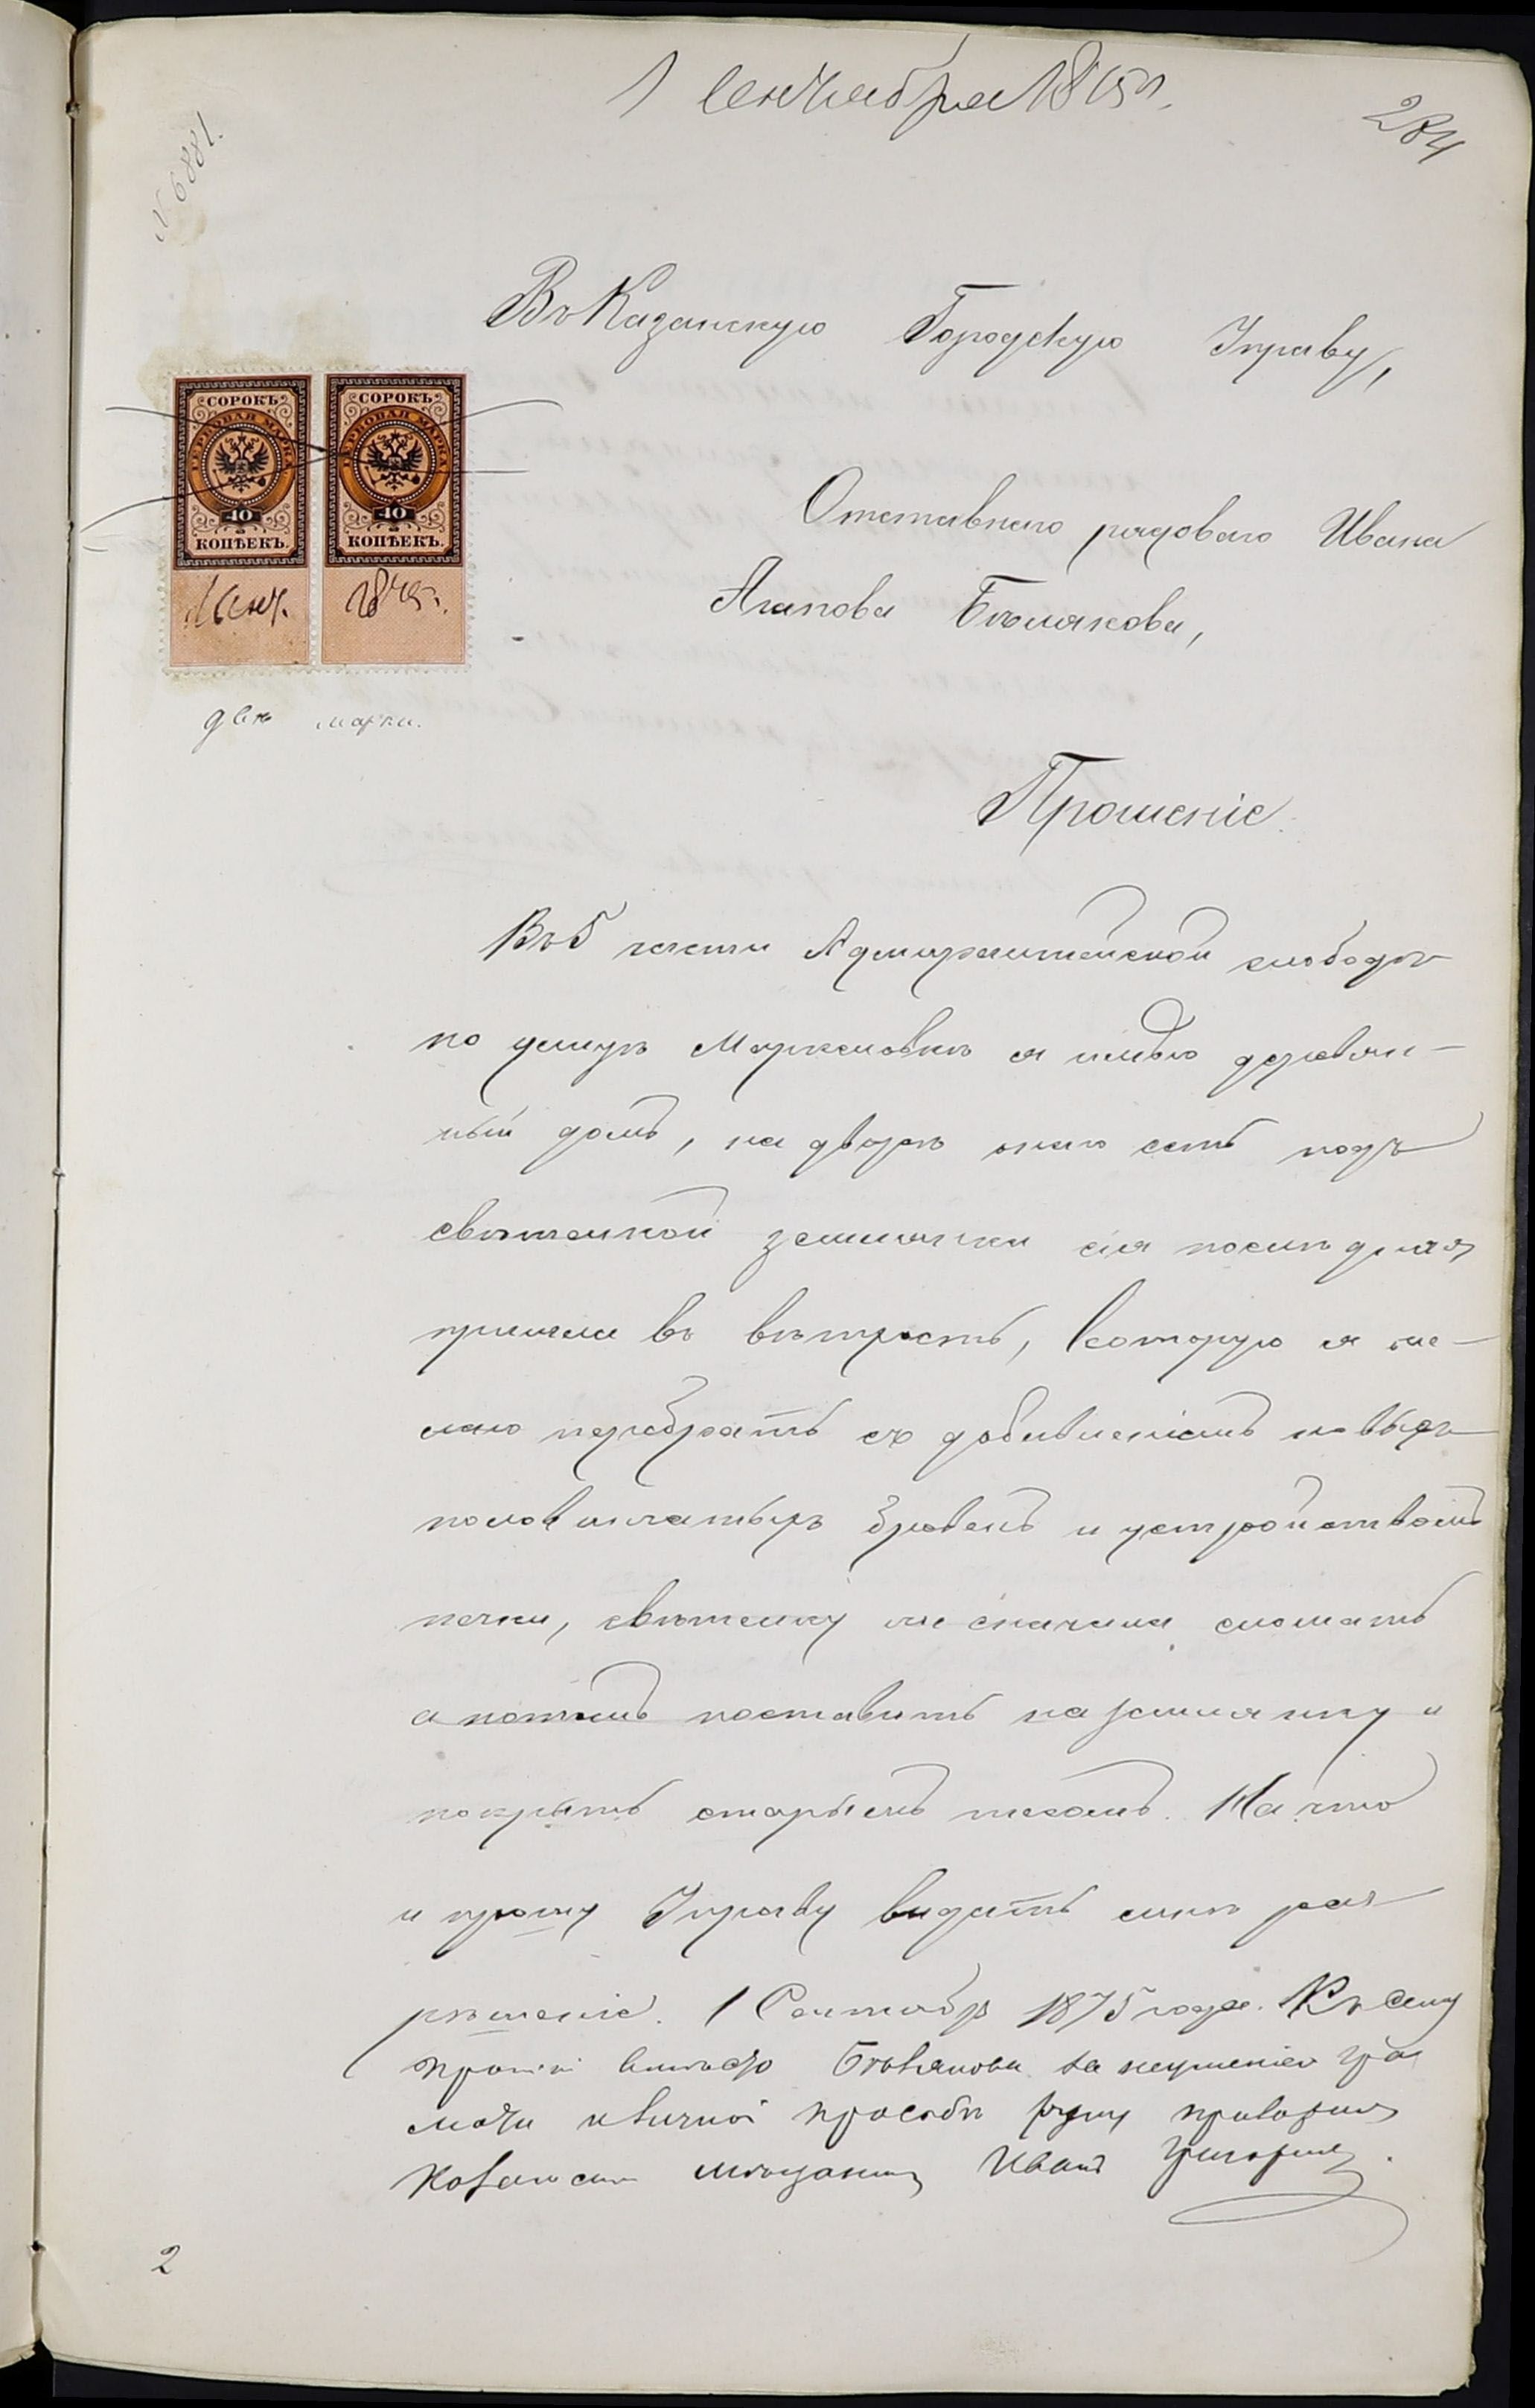 1 Сентября 1875 г.
284
N 6881.
Въ Казанскую Городскую Управу,
СОРОКЪ
ГЕРБОВАЯ МАРКА
40
КОПѢЕКЪ.
СОРОКЪ
ГЕРБОВАЯ МАРКА
40
КОПѢЕКЪ.
1 Сент. 1875 г.
двѣ марки.
Отставнаго рядоваго Ивана
Агапова Бѣлякова,
Прошеніе.
Въ 5 части Адмиралтейской слободѣ
по улицѣ Маркеловкѣ я имѣю деревян-
ный домъ, на дворѣ онаго есть подъ
свѣтелкой землянка сія послѣдняя
пришла въ ветхость, которую я же-
лаю перебрать съ добавленіемъ новыхъ
половинчатыхъ бревенъ и устройствомъ
печки, свѣтелку же сначала сломать
а потомъ поставить на землянку и
покрыть старымъ тесомъ. На что
и прошу Управу выдать мнѣ раз
рѣшеніе. 1 Сентябр 1875 года. Къ сему
прошенію вмѣсто Бѣлякова за неумѣніемъ гра
моты и личной прозьбѣ руку приложилъ
Казанскій мѣщанинъ Иванъ Григорьевъ.
2